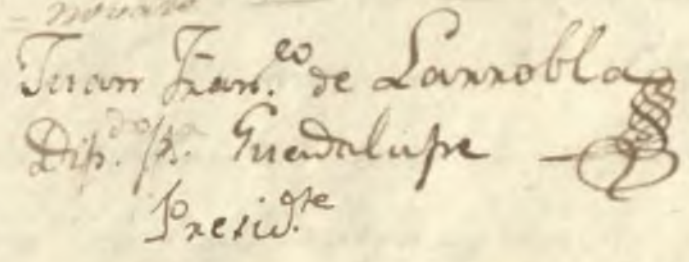 Juan Fran.co de Larrobla
Dip.do p.r Guadalupe
Presid.te